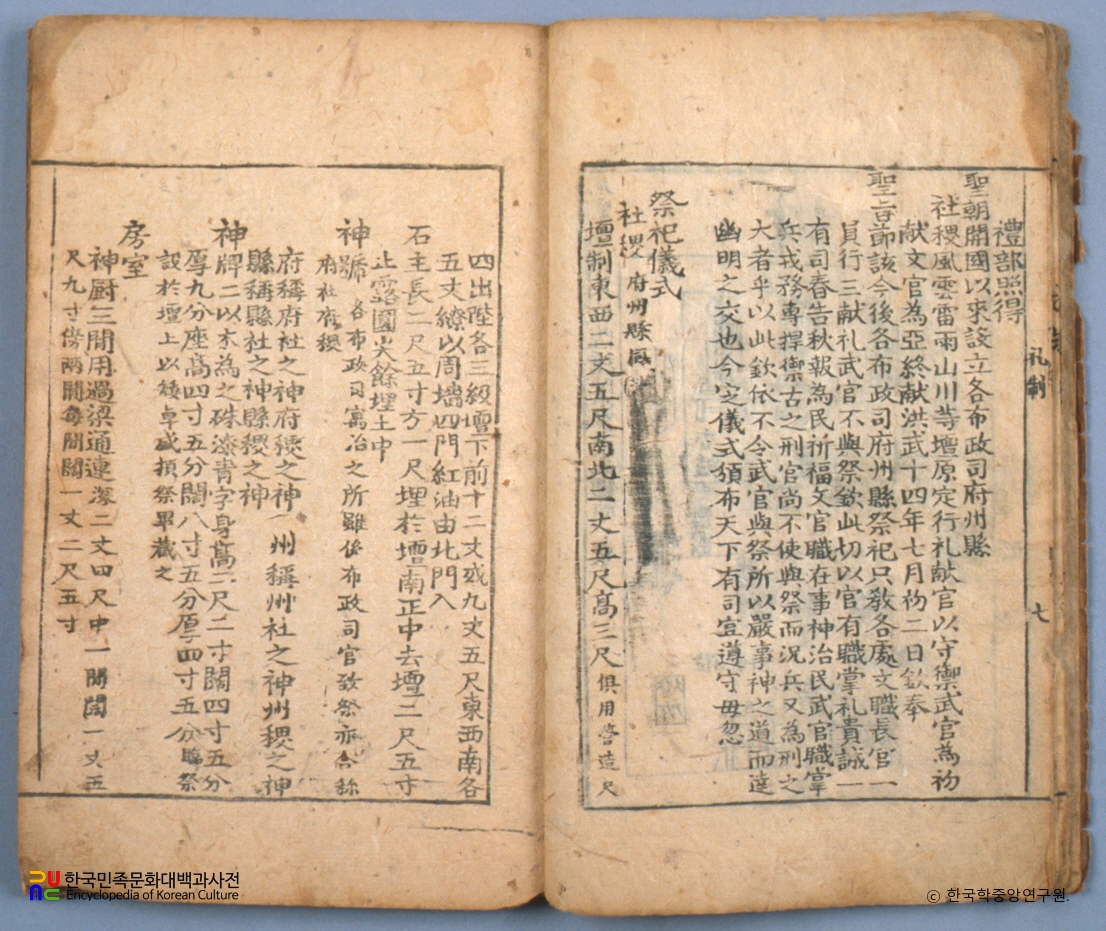 禮部照得
聖朝開國以來設立各布政司府州縣
社稷風雲雷雨山川等壇原定行礼献官以守禦武官為初
献文官為亞終献洪武十四年七月初二日欽奉
聖旨節該今後各布政司府州縣祭祀只教各處文職長官一
員行三献礼武官不與祭欽此切以官有職掌礼貴誠一
有司春告秋報為民祈福文官職在事神治民武官職掌
兵戎務專捍禦古之刑官尚不使與祭而況兵又為刑之
大者乎以此欽依不令武官與祭所以嚴事神之道而達
幽明之交也今定儀式頒布天下有司宜遵守毋忽
祭祀儀式
社稷 府州縣同
壇制東西二丈五尺南北二丈五尺高三尺俱用營造尺
礼制
七
四出陛各三級壇下前十二丈或九丈五尺東西南各
五丈繚以周墻四門紅油由北門入
石主長二尺五寸方一尺埋於壇南正中去壇二尺五寸
止露圓尖餘埋土中
神號 各布政司寓治之所雖係布政司官致祭亦合稱
府社府稷
府稱府社之神府稷之神 州稱州社之神州稷之神
縣稱縣社之神縣稷之神
神牌二以木為之硃漆青字身高二尺二寸闊四寸五分
厚九分座高四寸五分闊八寸五分厚四寸五分臨祭
設於壇上以矮卓盛頓祭畢藏之
房室
神厨三間用過梁通連深二丈四尺中一間闊一丈五
尺九寸傍兩間每間闊一丈二尺五寸
한국민족문화대백과사전
Encyclopedia of Korean Culture
© 한국학중앙연구원.